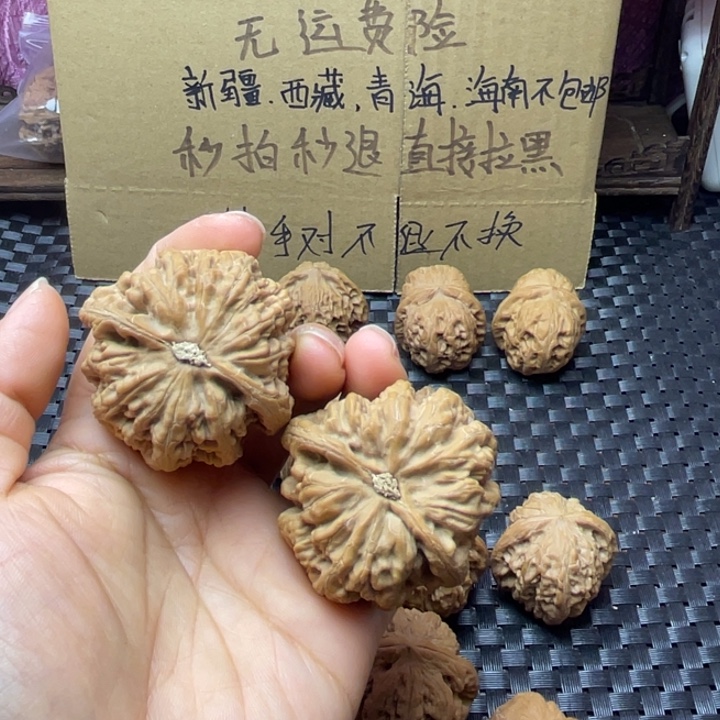 无运费险
新疆.西藏,青海.海南不包邮
秒拍秒退 直接拉黑
手对不退不换